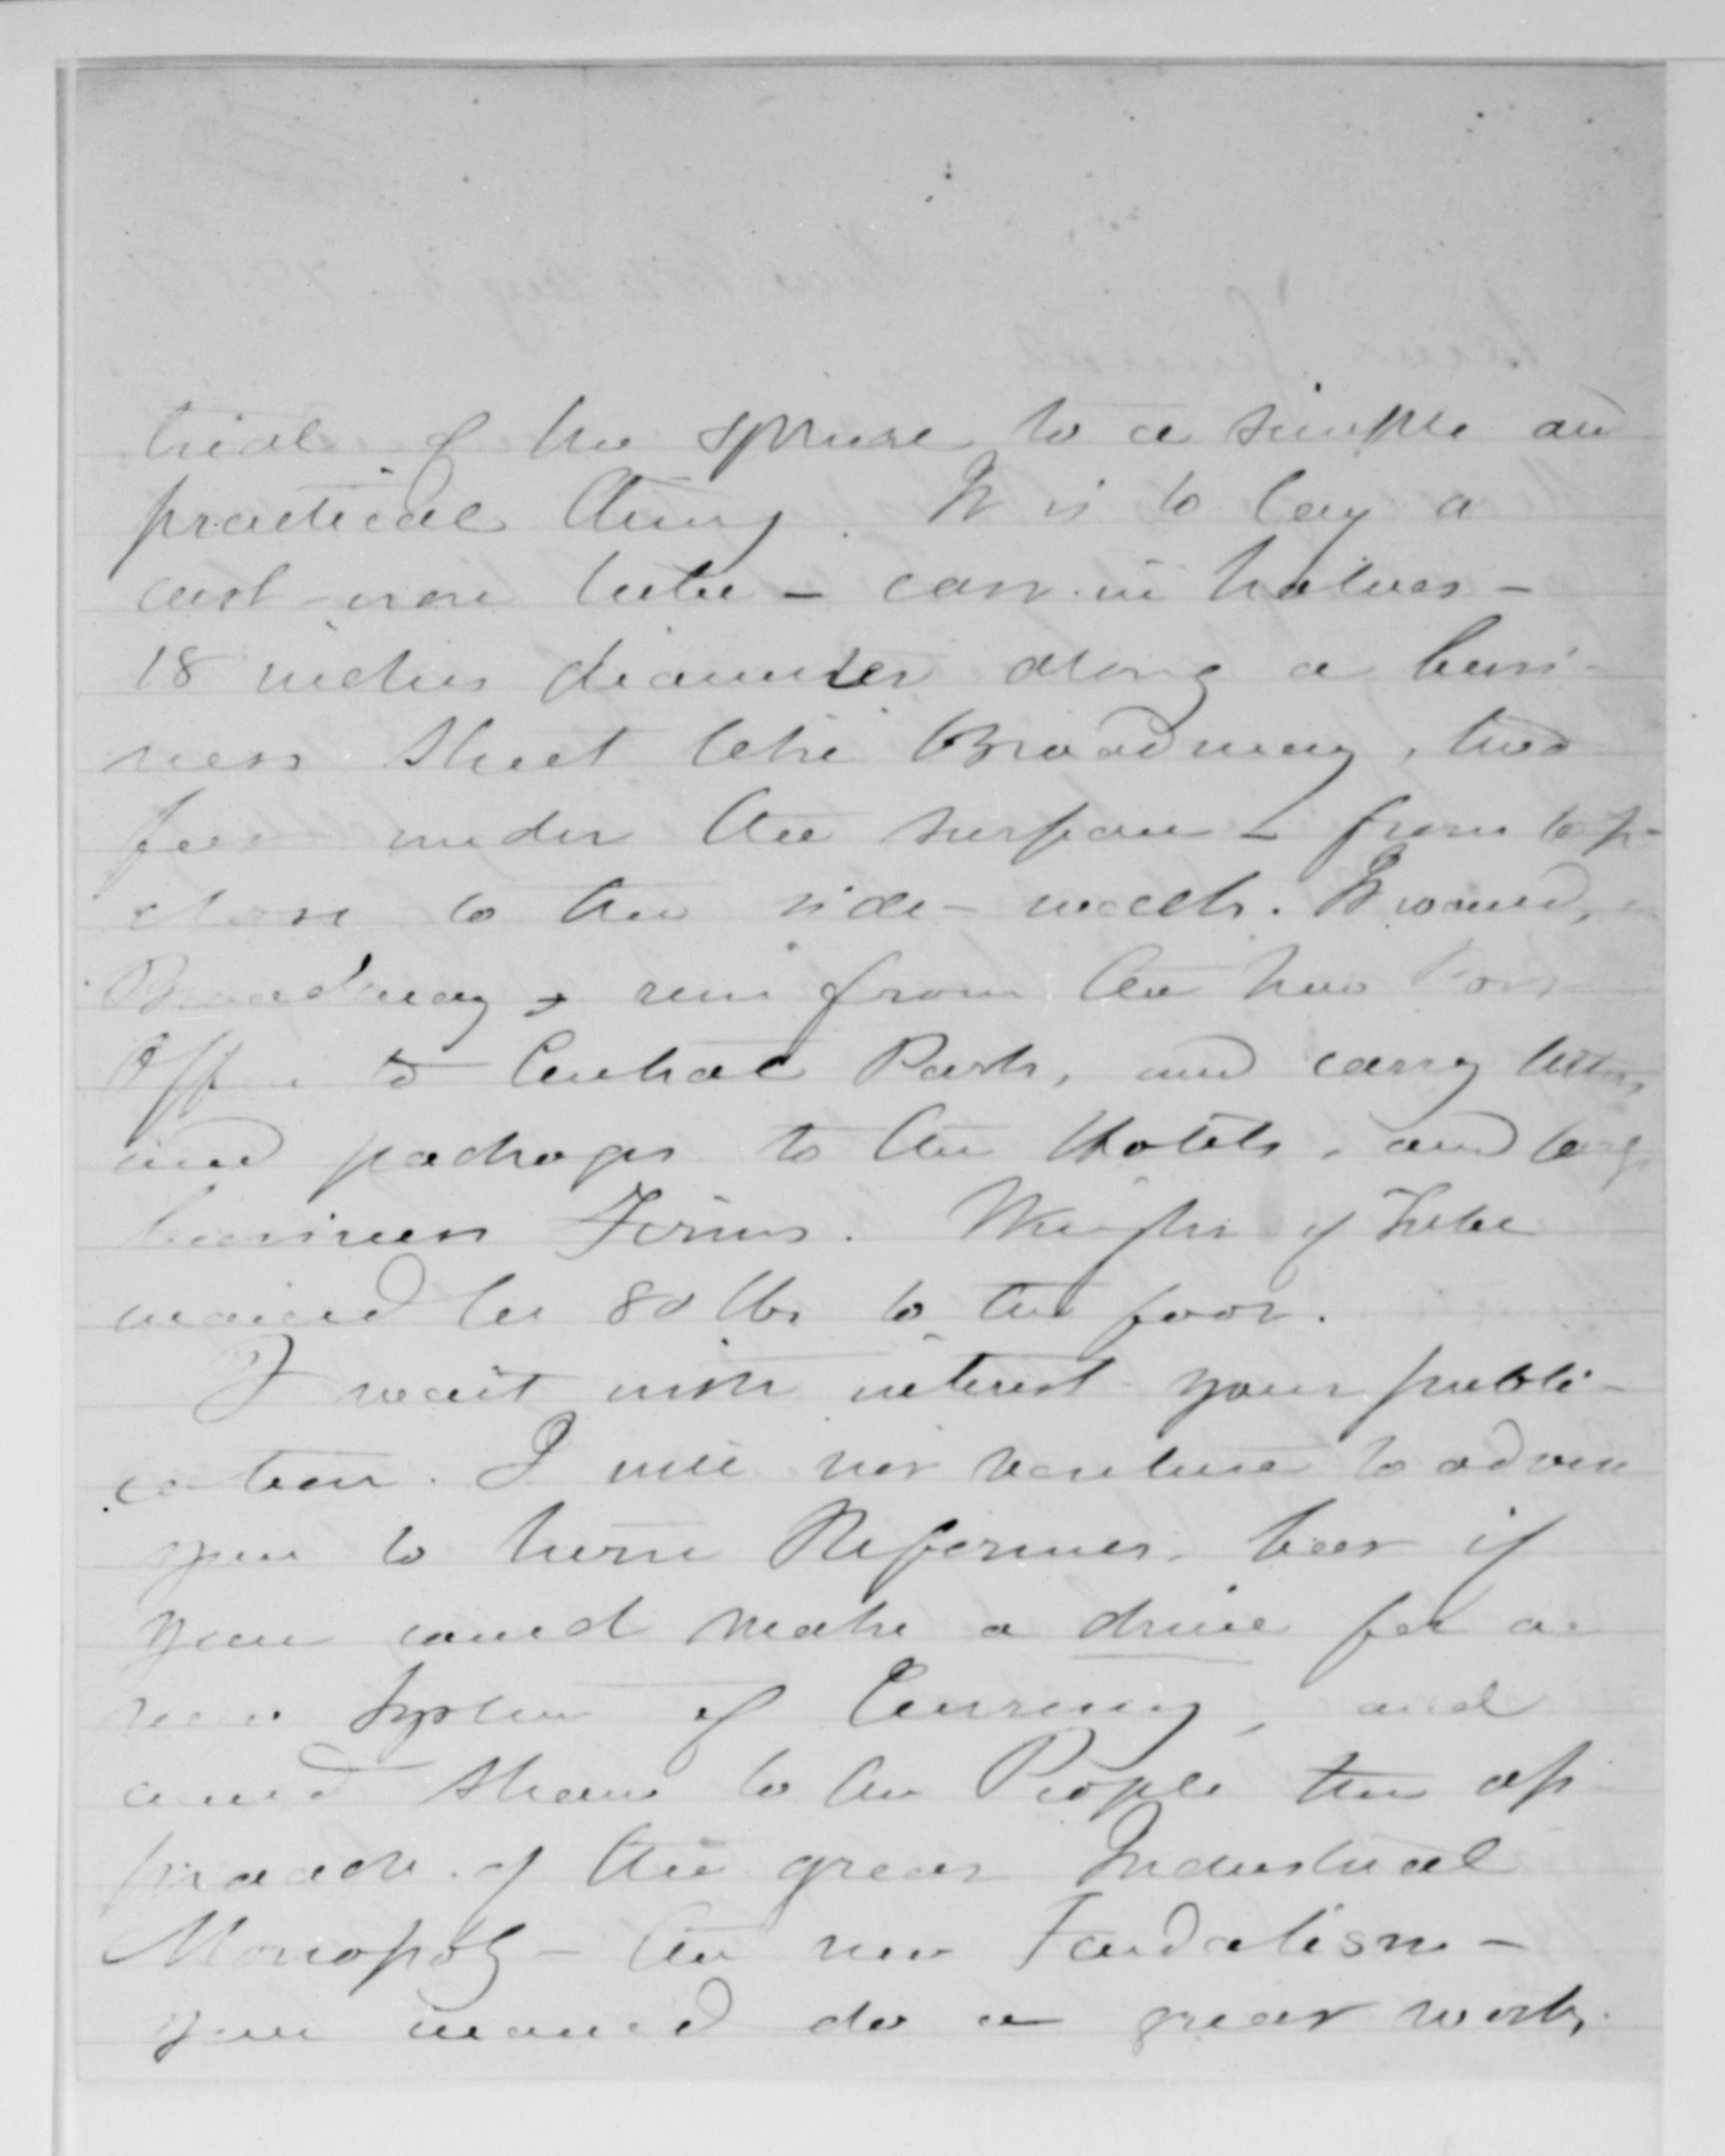 trial of the sphere to a simple and
practical thing. It is to lay a
cast-iron tube – cast in halves –
18 inches diameter along a busi-
ness street like Broadway, two
feet under the surface – from top
close to the side-walk. It would, in
Broadway, run from the new Post
Office to Central Park, and carry letters
and packages to the Hotels, and large
business Firms. Weight of Tube
would be 80 lbs to the foot.
I wait with interest your publi-
cation. I will not venture to advise
you to turn Reformer, but if
you could make a drive for a
new System of Currency, and
could show to the People the ap
proach of the great Industrial
Monopoly – the new Feudalism –
you would do a great work,